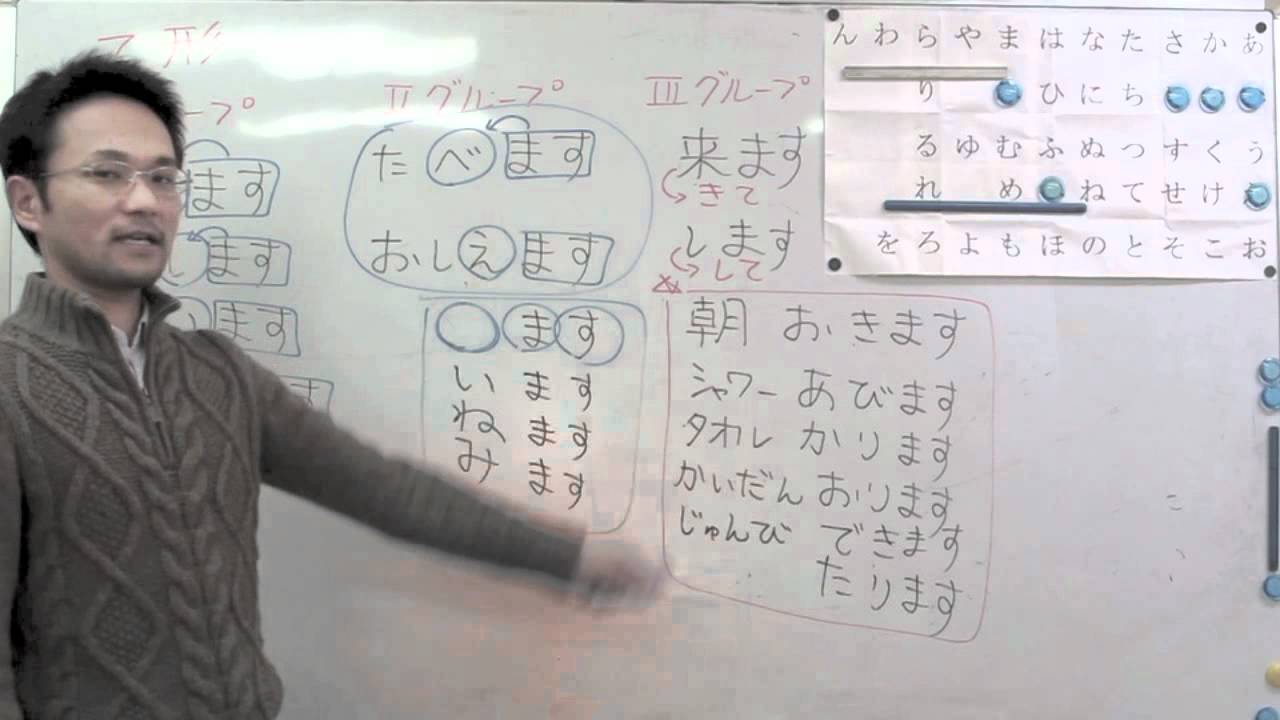 て形
ープ
ます
ます
ます
IIグループ
たべます
おしえます
ます
います
ねます
みます
IIIグループ
来ます
きて
します
して
朝 おきます
シャワー あびます
タオル かります
かいだん おります
じゅんび できます
たります
んわらやまはなたさかあ
りひにち
るゆむふぬつすくう
れめねてせけ
をろよもほのとそこお